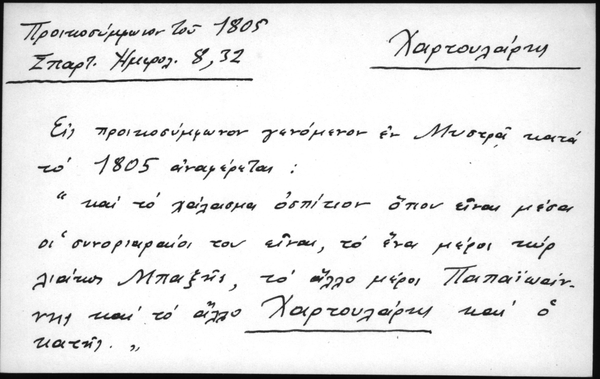 Προικοσύμφωνον τοῦ 1805
Σπαρτ. Ημερολ. 8, 32
Χαρτουλάρης
Εἰς προικοσύμφωνον γενόμενον ἐν Μυστρᾷ κατά
τό 1805 ἀναφέρεται :
“ καί τό χάλασμα ὀσπίτιον ὅπου εἶναι μέσα
οἱ συνοριαραῖοι του εἶναι, τό ἕνα μέρος
Μπαξῆς, τό ἄλλο μέρος Παπαϊωάν-
νης καί τό ἄλλο Χαρτουλάρης καί ὁ
κατῆς. „